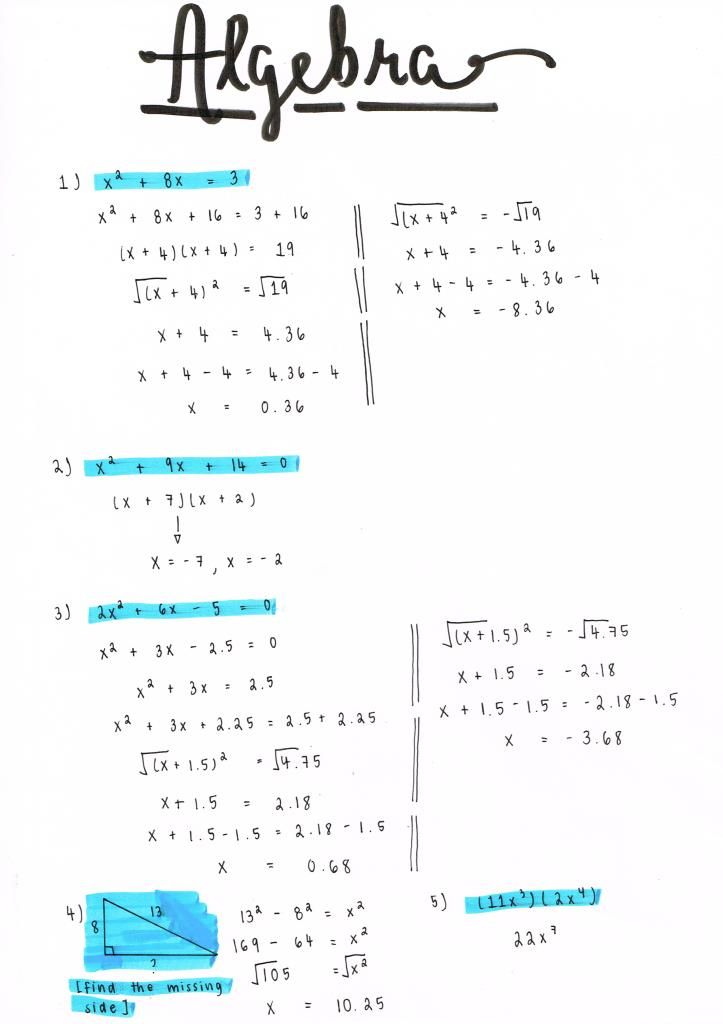 Algebra
1) x² + 8x = 3
x² + 8x + 16 = 3 + 16
(x + 4)(x + 4) = 19
√(x + 4)² = √19
x + 4 = 4.36
x + 4 - 4 = 4.36 - 4
x = 0.36
√(x + 4² = -√19
x + 4 = -4.36
x + 4 - 4 = -4.36 - 4
x = -8.36
2) x² + 9x + 14 = 0
(x + 7)(x + 2)
x = -7, x = -2
3) 2x² + 6x - 5 = 0
x² + 3x - 2.5 = 0
x² + 3x = 2.5
x² + 3x + 2.25 = 2.5 + 2.25
√(x + 1.5)² = √4.75
x + 1.5 = 2.18
x + 1.5 - 1.5 = 2.18 - 1.5
x = 0.68
√(x + 1.5)² = -√4.75
x + 1.5 = -2.18
x + 1.5 - 1.5 = -2.18 - 1.5
x = -3.68
4)
8
13
?
[find the missing
side]
13² - 8² = x²
169 - 64 = x²
√105 = √x²
x = 10.25
5) (11x³)(2x⁴)
22x⁷